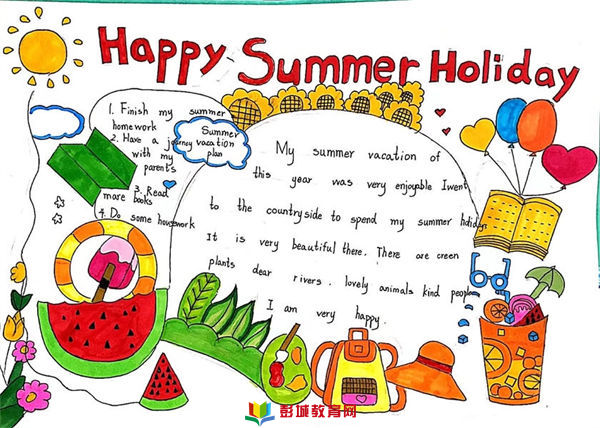 Happy Summer Holiday
1. Finish my summer
homework
2. Have a journey
with my
parents
3. Read
more books
4. Do some housework
Summer
vacation
plan
My summer vacation of
this year was very enjoyable I went
to the countryside to spend my summer holidays
It is very beautiful there. There are creen
plants dear rivers. lovely animals kind people
I am very happy.
彭城教育网